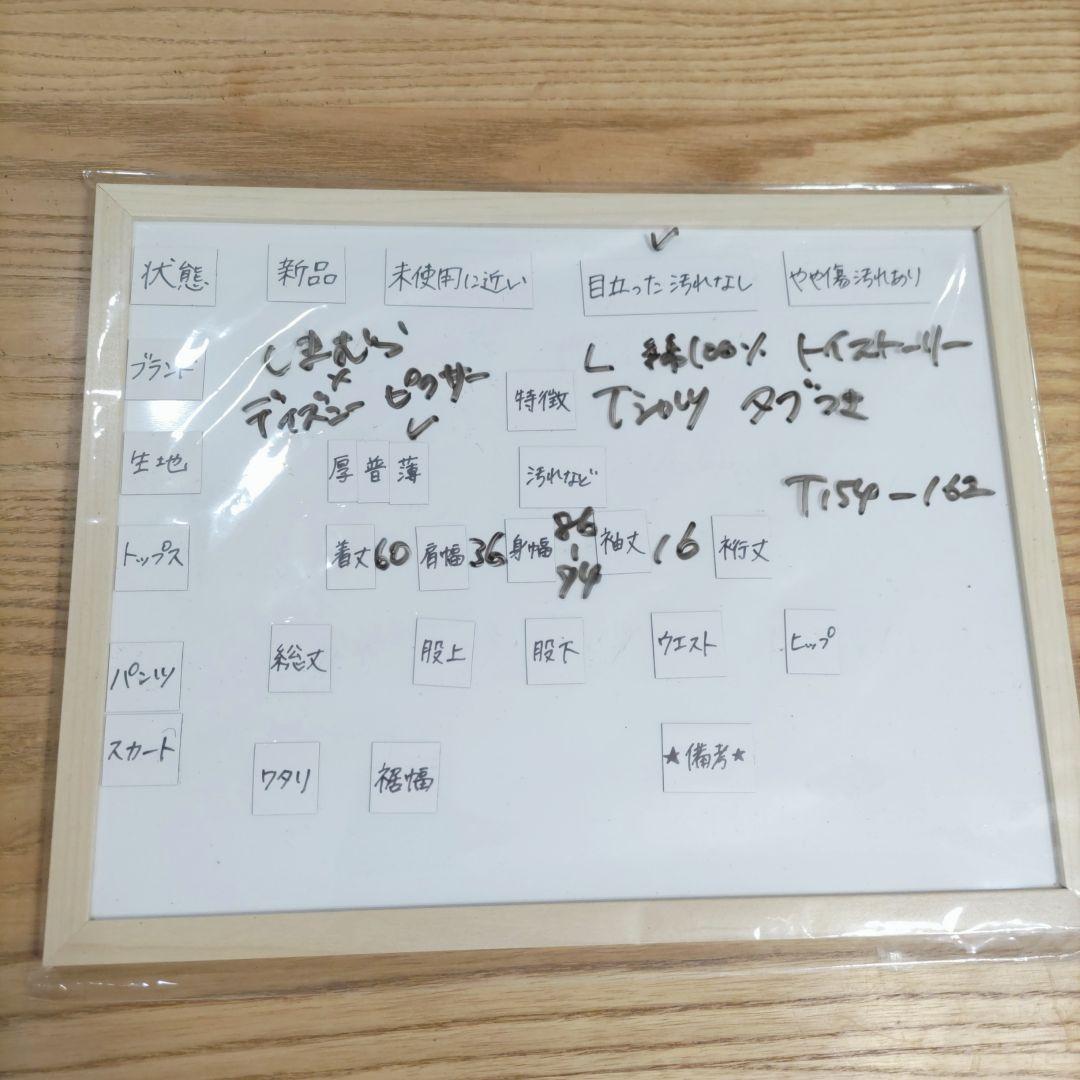 ✓
状態 新品 未使用に近い 目立った汚れなし やや傷汚れあり
ブランド しまむら × ディズニー ピクサー
特徴 L 綿100% トイストーリー
Tシャツ タブつき
✓
生地 厚 普 薄 汚れなど T154-162
トップス 着丈 60 肩幅 36 身幅 86-94 袖丈 16 裄丈
パンツ 総丈 股上 股下 ウエスト ヒップ
スカート ワタリ 裾幅 ★備考★